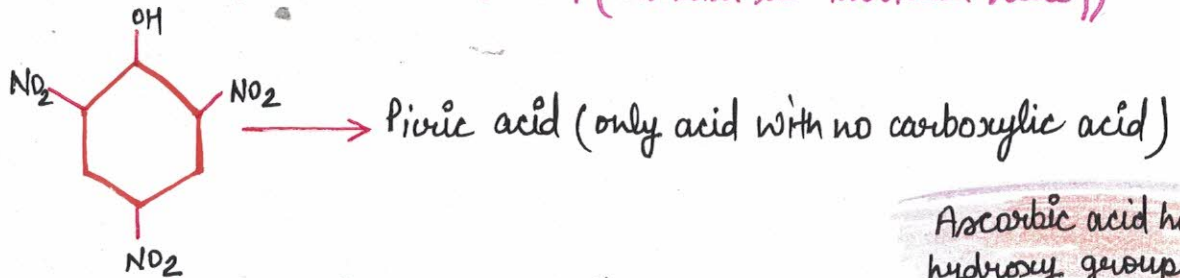 OH
NO2
NO2
Picric acid (only acid with no carboxylic acid)
Ascorbic acid
hydroxy group
NO2